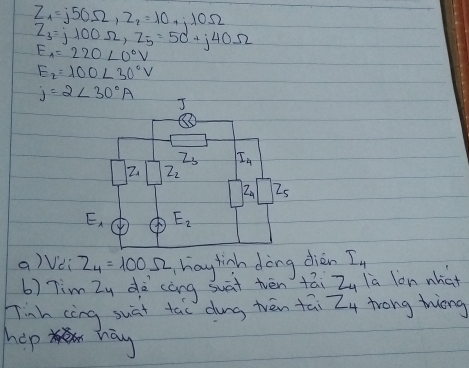 Z₁=j50Ω, Z₂=10+j10Ω
Z₃=j100Ω, Z5=50+j40Ω
E₁=220∠0°V
E₂=100∠30°V
j=2∠30°A
J
Z₃ I₄
Z₁ Z₂
Z₄ Z₅
E₁ E₂
a) Với Z₄=100Ω, hãy tính dòng điện I₄
b) Tìm Z₄ để công suất trên tải Z₄ là lớn nhất
Tính công suất tác dụng trên tải Z₄ trong trường
hợp này